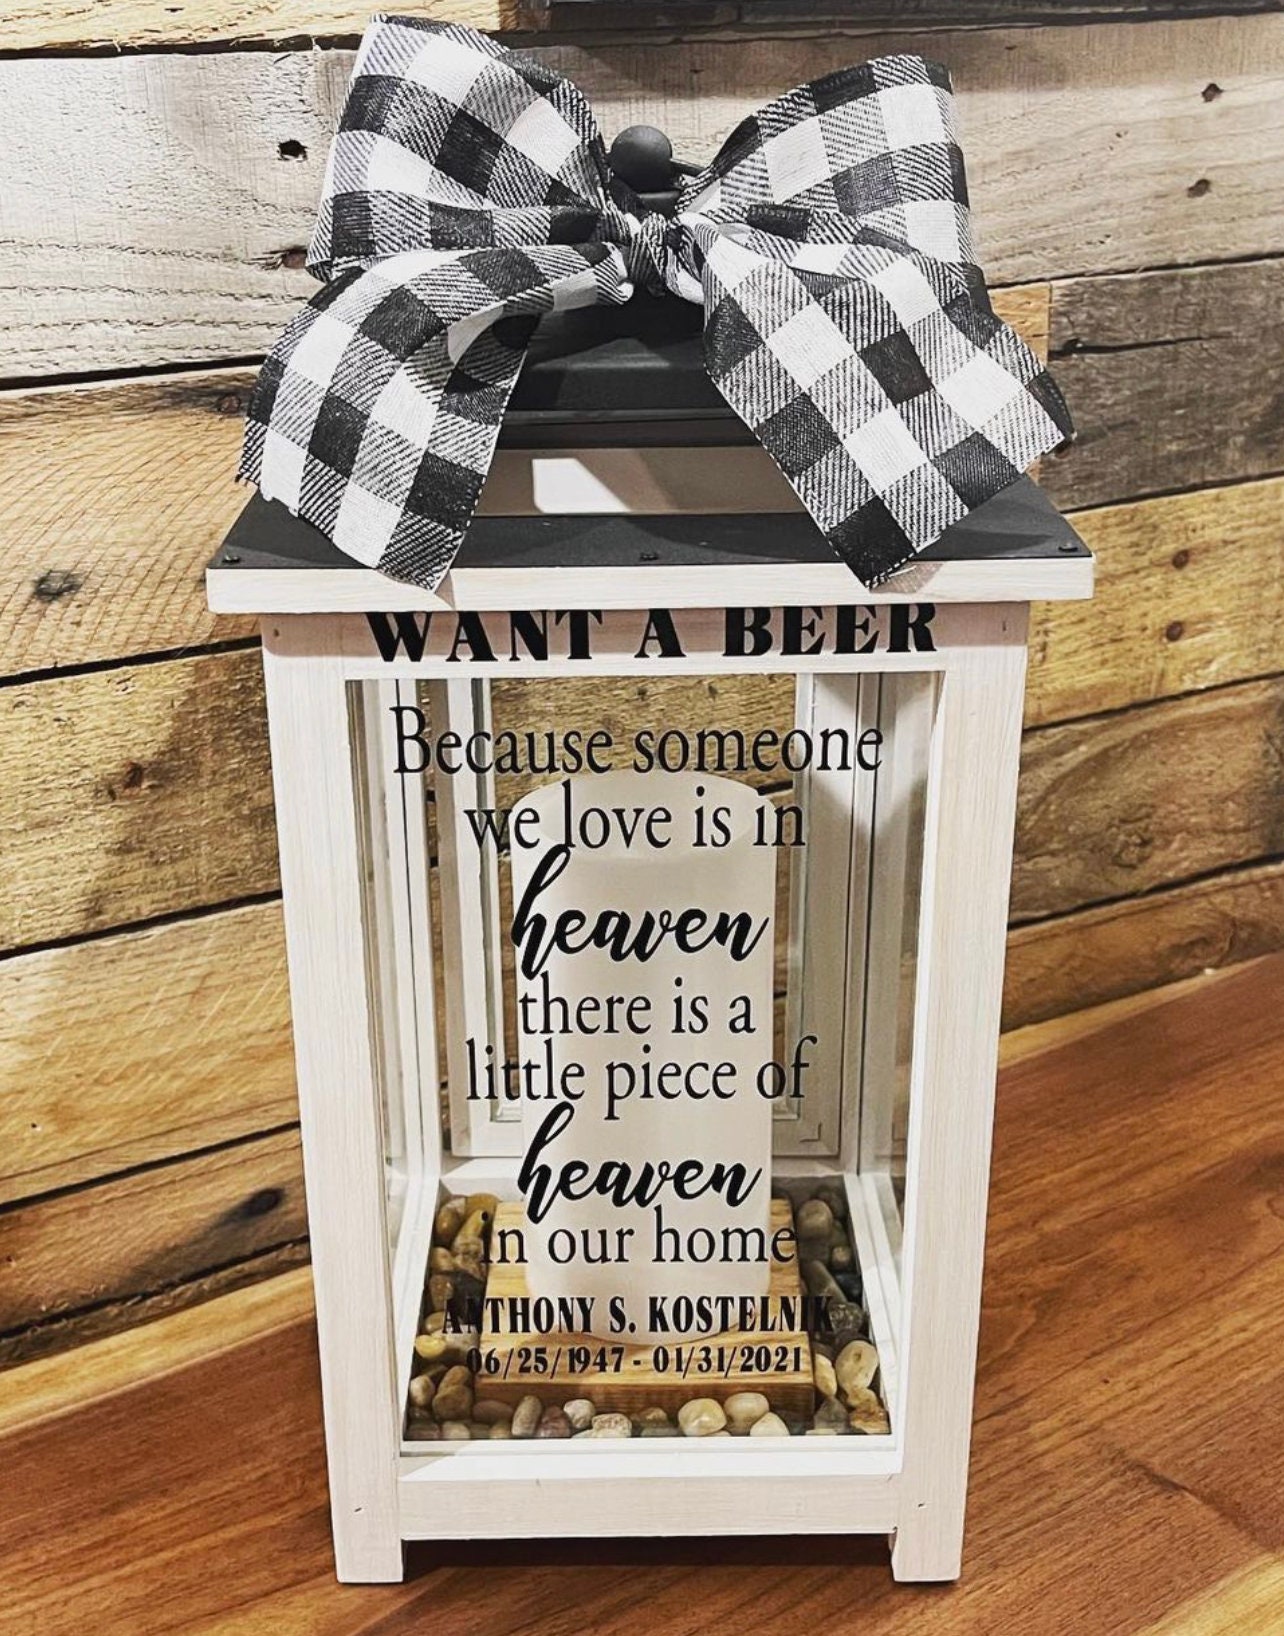 WANT A BEER
Because someone
we love is in
heaven
there is a
little piece of
heaven
in our home
ANTHONY S. KOSTELNIK
06/25/1947 - 01/31/2021